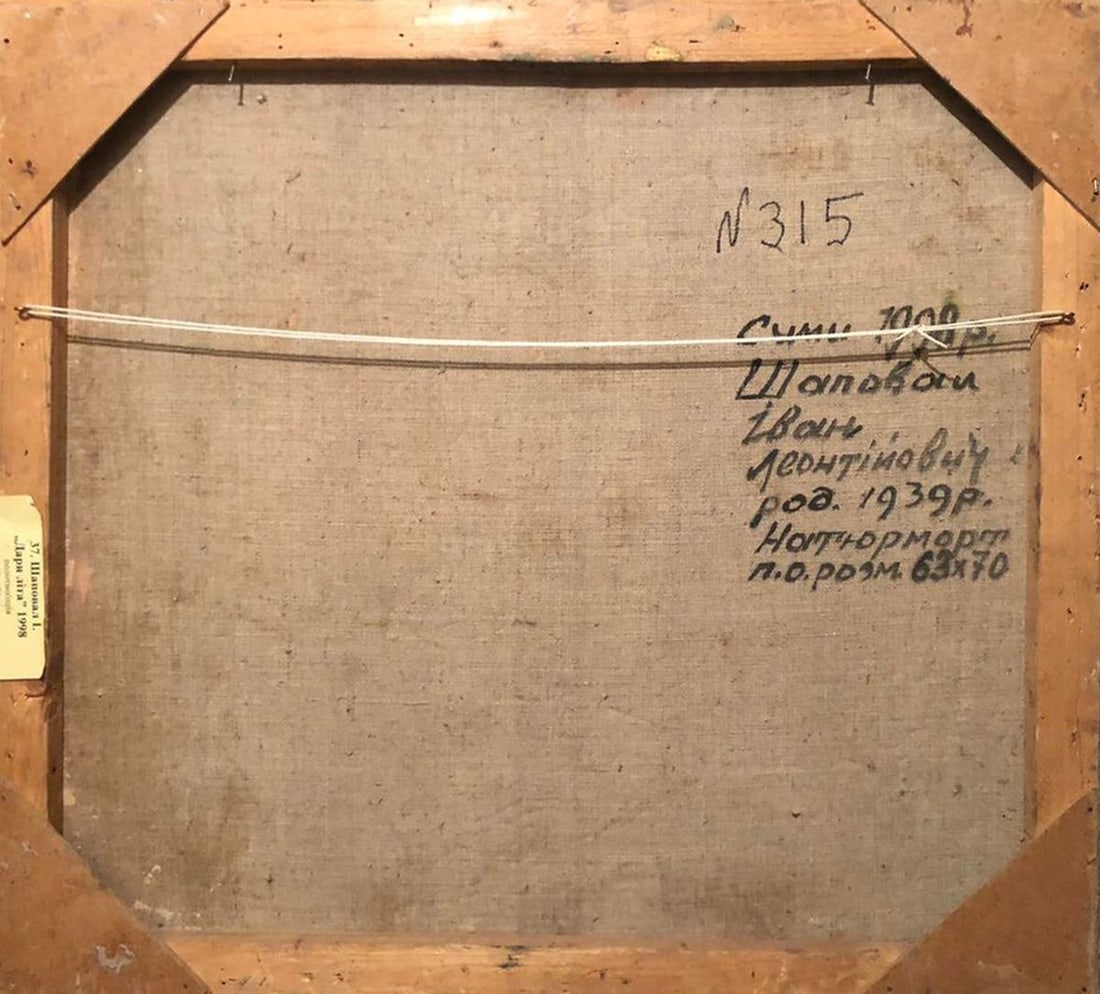 N315
Суми 1998р.
Шаповал
Іван
Леонтійович
род. 1939р.
Натюрморт
п.о. розм. 63х70
37. Шаповал І.
„Дари літа" 1998